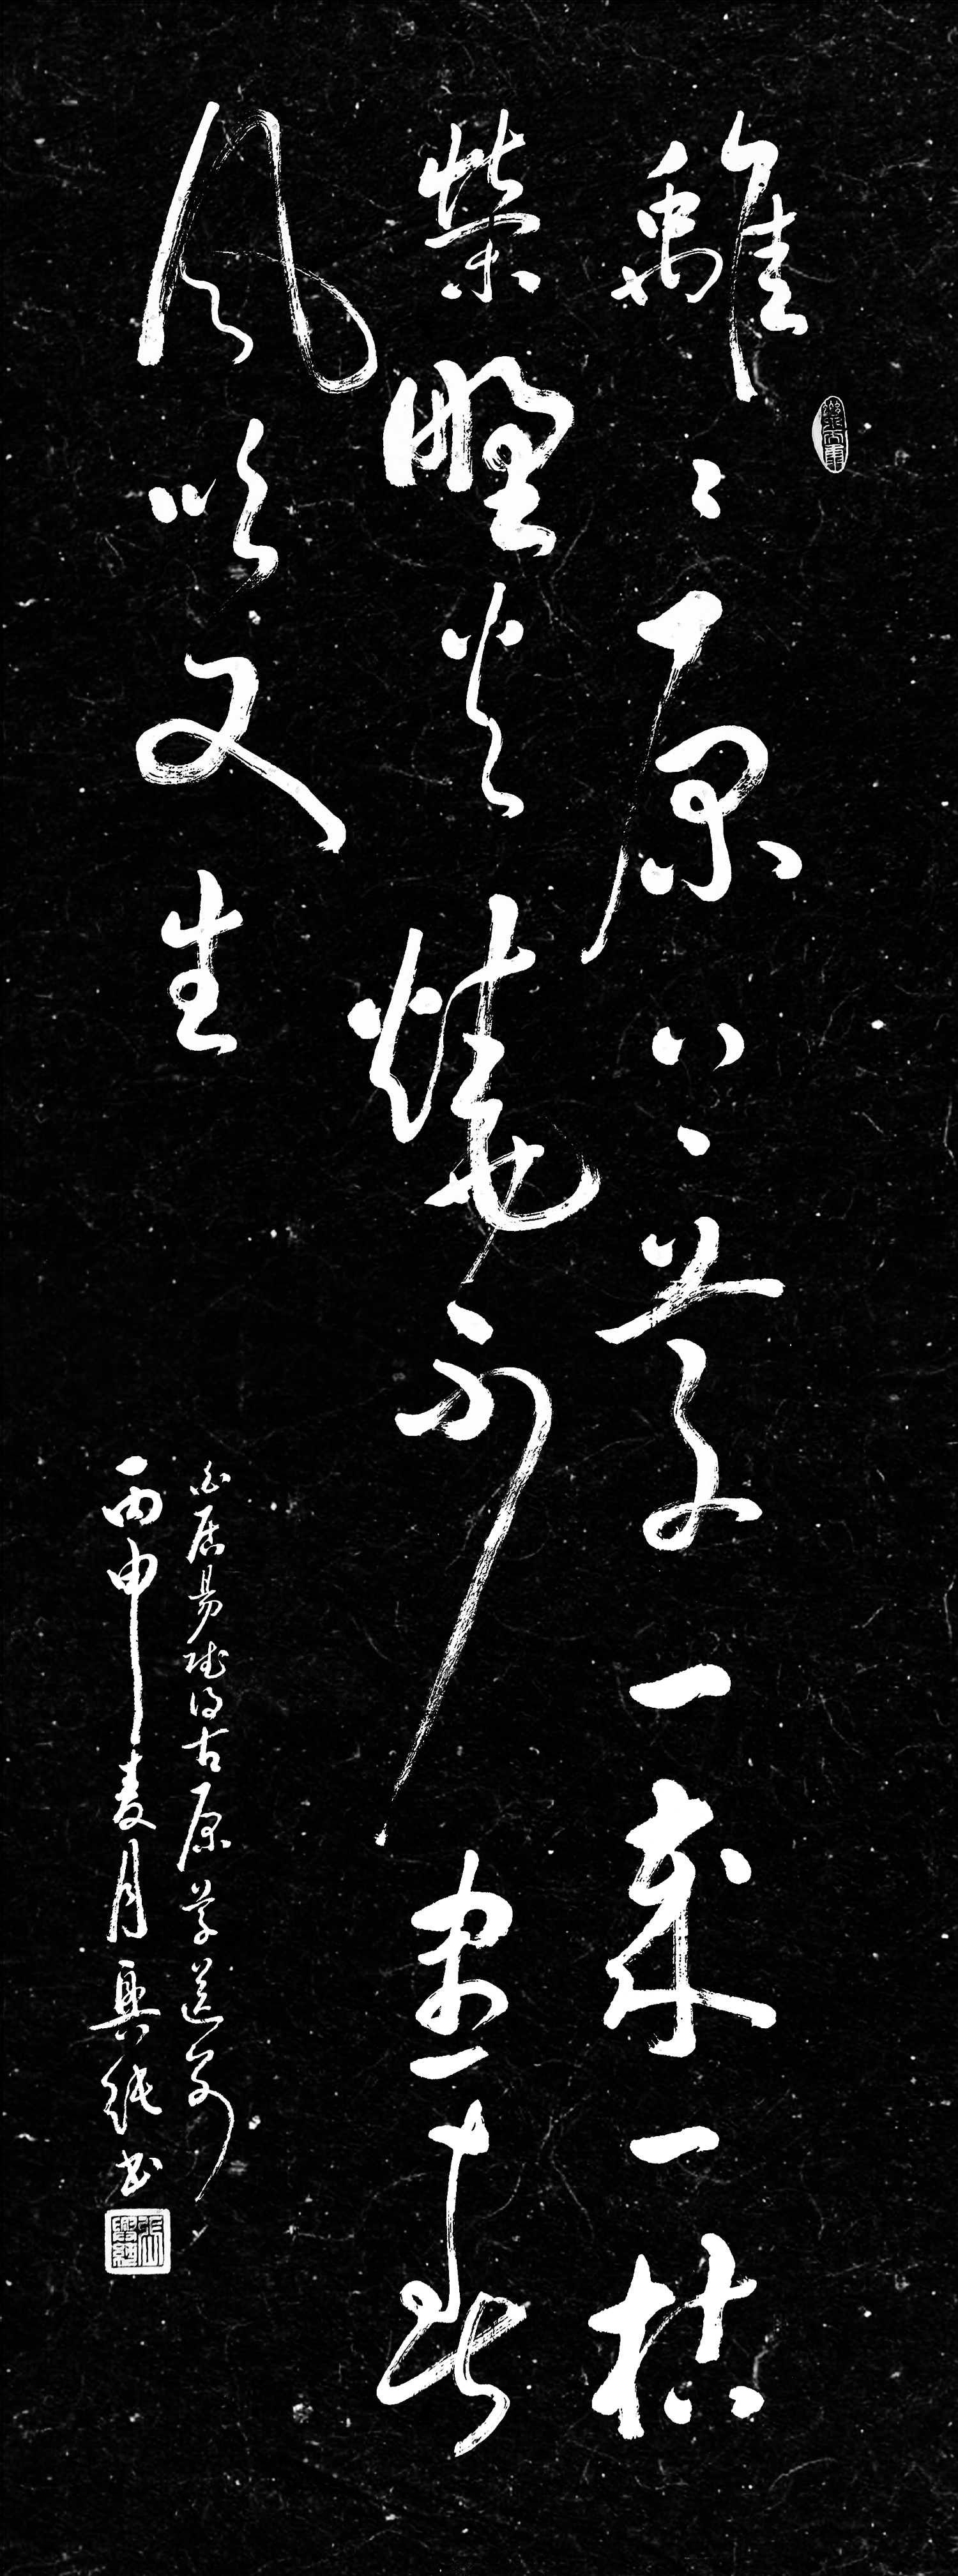 離〻原上草一歲一枯
榮野火燒不盡春
風吹又生
白居易賦得古原草送別
丙申麦月興純书